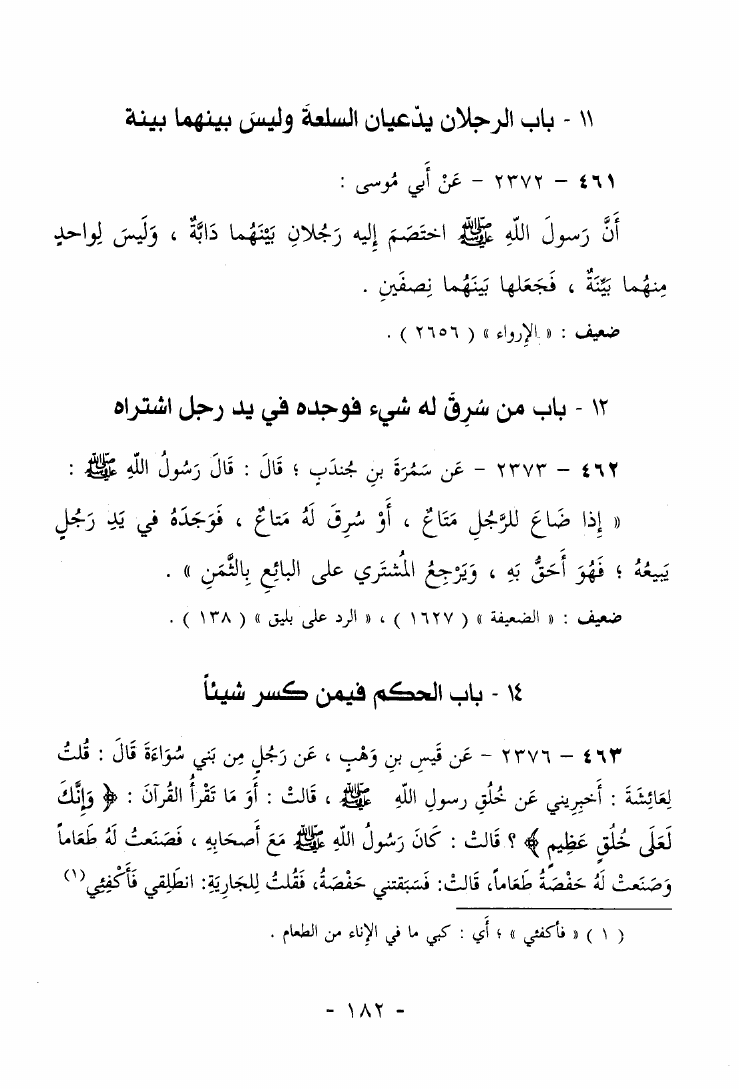 ١١ - باب الرجلان يدّعيان السلعةَ وليسَ بينهما بينة
٤٦١ – ٢٣٧٢ – عَنْ أَبي مُوسى :
أَنَّ رَسولَ اللّهِ ﷺ اختَصَمَ إليه رَجُلانِ بَيْنَهُما دَابَّةٌ ، وَلَيسَ لِواحدٍ
مِنهُما بَيِّنَةٌ ، فَجَعَلها بَينَهُما نِصفَينِ .
ضعيف : « الإرواء » ( ٢٦٥٦ ) .
١٢ - باب من سُرِقَ له شيء فوجده في يد رجل اشتراه
٤٦٢ – ٢٣٧٣ – عَن سَمُرَةَ بنِ جُندَبٍ ؛ قالَ : قَالَ رَسُولُ اللّهِ ﷺ :
« إِذا ضَاعَ للرَّجُلِ مَتَاعٌ ، أَوْ سُرِقَ لَهُ مَتاعٌ ، فَوَجَدَهُ في يَدِ رَجُلٍ
يَبيعُهُ ؛ فَهُوَ أَحَقُّ بَهِ ، وَيَرْجِعُ المُشتَري على البائِعِ بِالثَّمَنِ » .
ضعيف : « الضعيفة » ( ١٦٢٧ ) ، « الرد على بليق » ( ١٣٨ ) .
١٤ - باب الحكم فيمن كسر شيئاً
٤٦٣ – ٢٣٧٦ – عَن قَيسِ بنِ وَهْبٍ ، عَن رَجُلٍ مِن بَني سُوَاءَةَ قَالَ : قُلتُ
لِعَائِشَةَ : أَخبِريني عَن خُلُقِ رسولِ اللّهِ ﷺ ، قَالتْ : أَوَ مَا تَقْرأُ القُرآنَ : ﴿ وَإِنَّكَ
لَعَلَى خُلُقٍ عَظِيمٍ ﴾ ؟ قَالتْ : كَانَ رَسُولُ اللّهِ ﷺ مَعَ أَصحَابِهِ ، فَصَنَعتُ لَهُ طَعَاماً
وَصَنَعتْ لَهُ حَفْصَةُ طَعَاماً، قَالتْ: فَسَبَقتني حَفْصَةُ، فَقُلتُ لِلجَارِيَةِ: انطَلِقي فَأَكْفِئِي(١)
( ١ ) « فأكفئي » ؛ أَي : كبي ما في الإناء من الطعام .
- ١٨٢ -